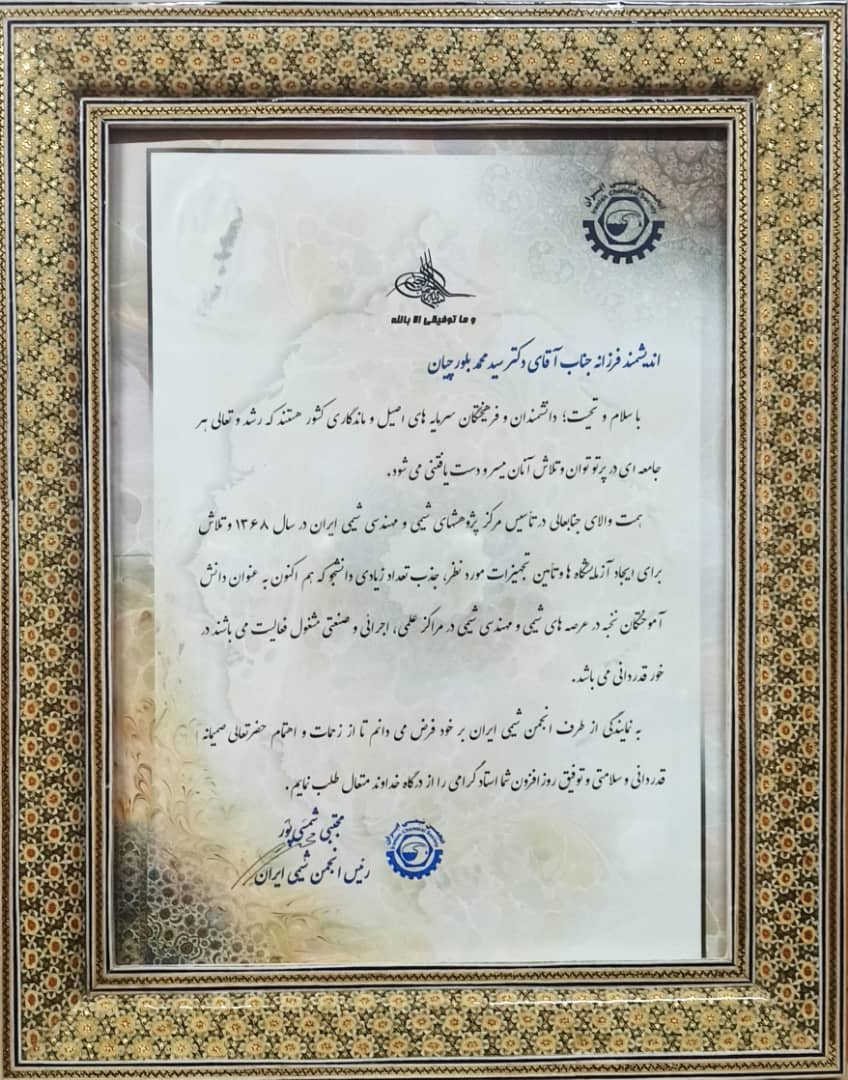 انجمن شیمی ایران
Iranian Chemical Society
و ما توفیقی الا بالله
اندیشمند فرزانه جناب آقای دکتر سید محمد بلورچیان
با سلام و تحیت؛ دانشمندان و فرهیختگان سرمایه های اصیل و ماندگاری کشور هستند که رشد و تعالی هر
جامعه ای در پرتو توان و تلاش آنان میسر و دست یافتنی می شود.
همت والای جنابعالی در تأسیس مرکز پژوهشهای شیمی و مهندسی شیمی ایران در سال ۱۳۶۸ و تلاش
برای ایجاد آزمایشگاه ها و تأمین تجهیزات مورد نظر، جذب تعداد زیادی دانشجو که هم اکنون به عنوان دانش
آموختگان نخبه در عرصه های شیمی و مهندسی شیمی در مراکز علمی، اجرائی و صنعتی مشغول فعالیت می باشند در
خور قدردانی می باشد.
به نمایندگی از طرف انجمن شیمی ایران بر خود فرض می دانم تا از زحمات و اهتمام حضرتعالی صمیمانه
قدردانی و سلامتی و توفیق روزافزون شما استاد گرامی را از درگاه خداوند متعال طلب نمایم.
مجتبی شمسی پور
رئیس انجمن شیمی ایران
انجمن شیمی ایران
Iranian Chemical Society